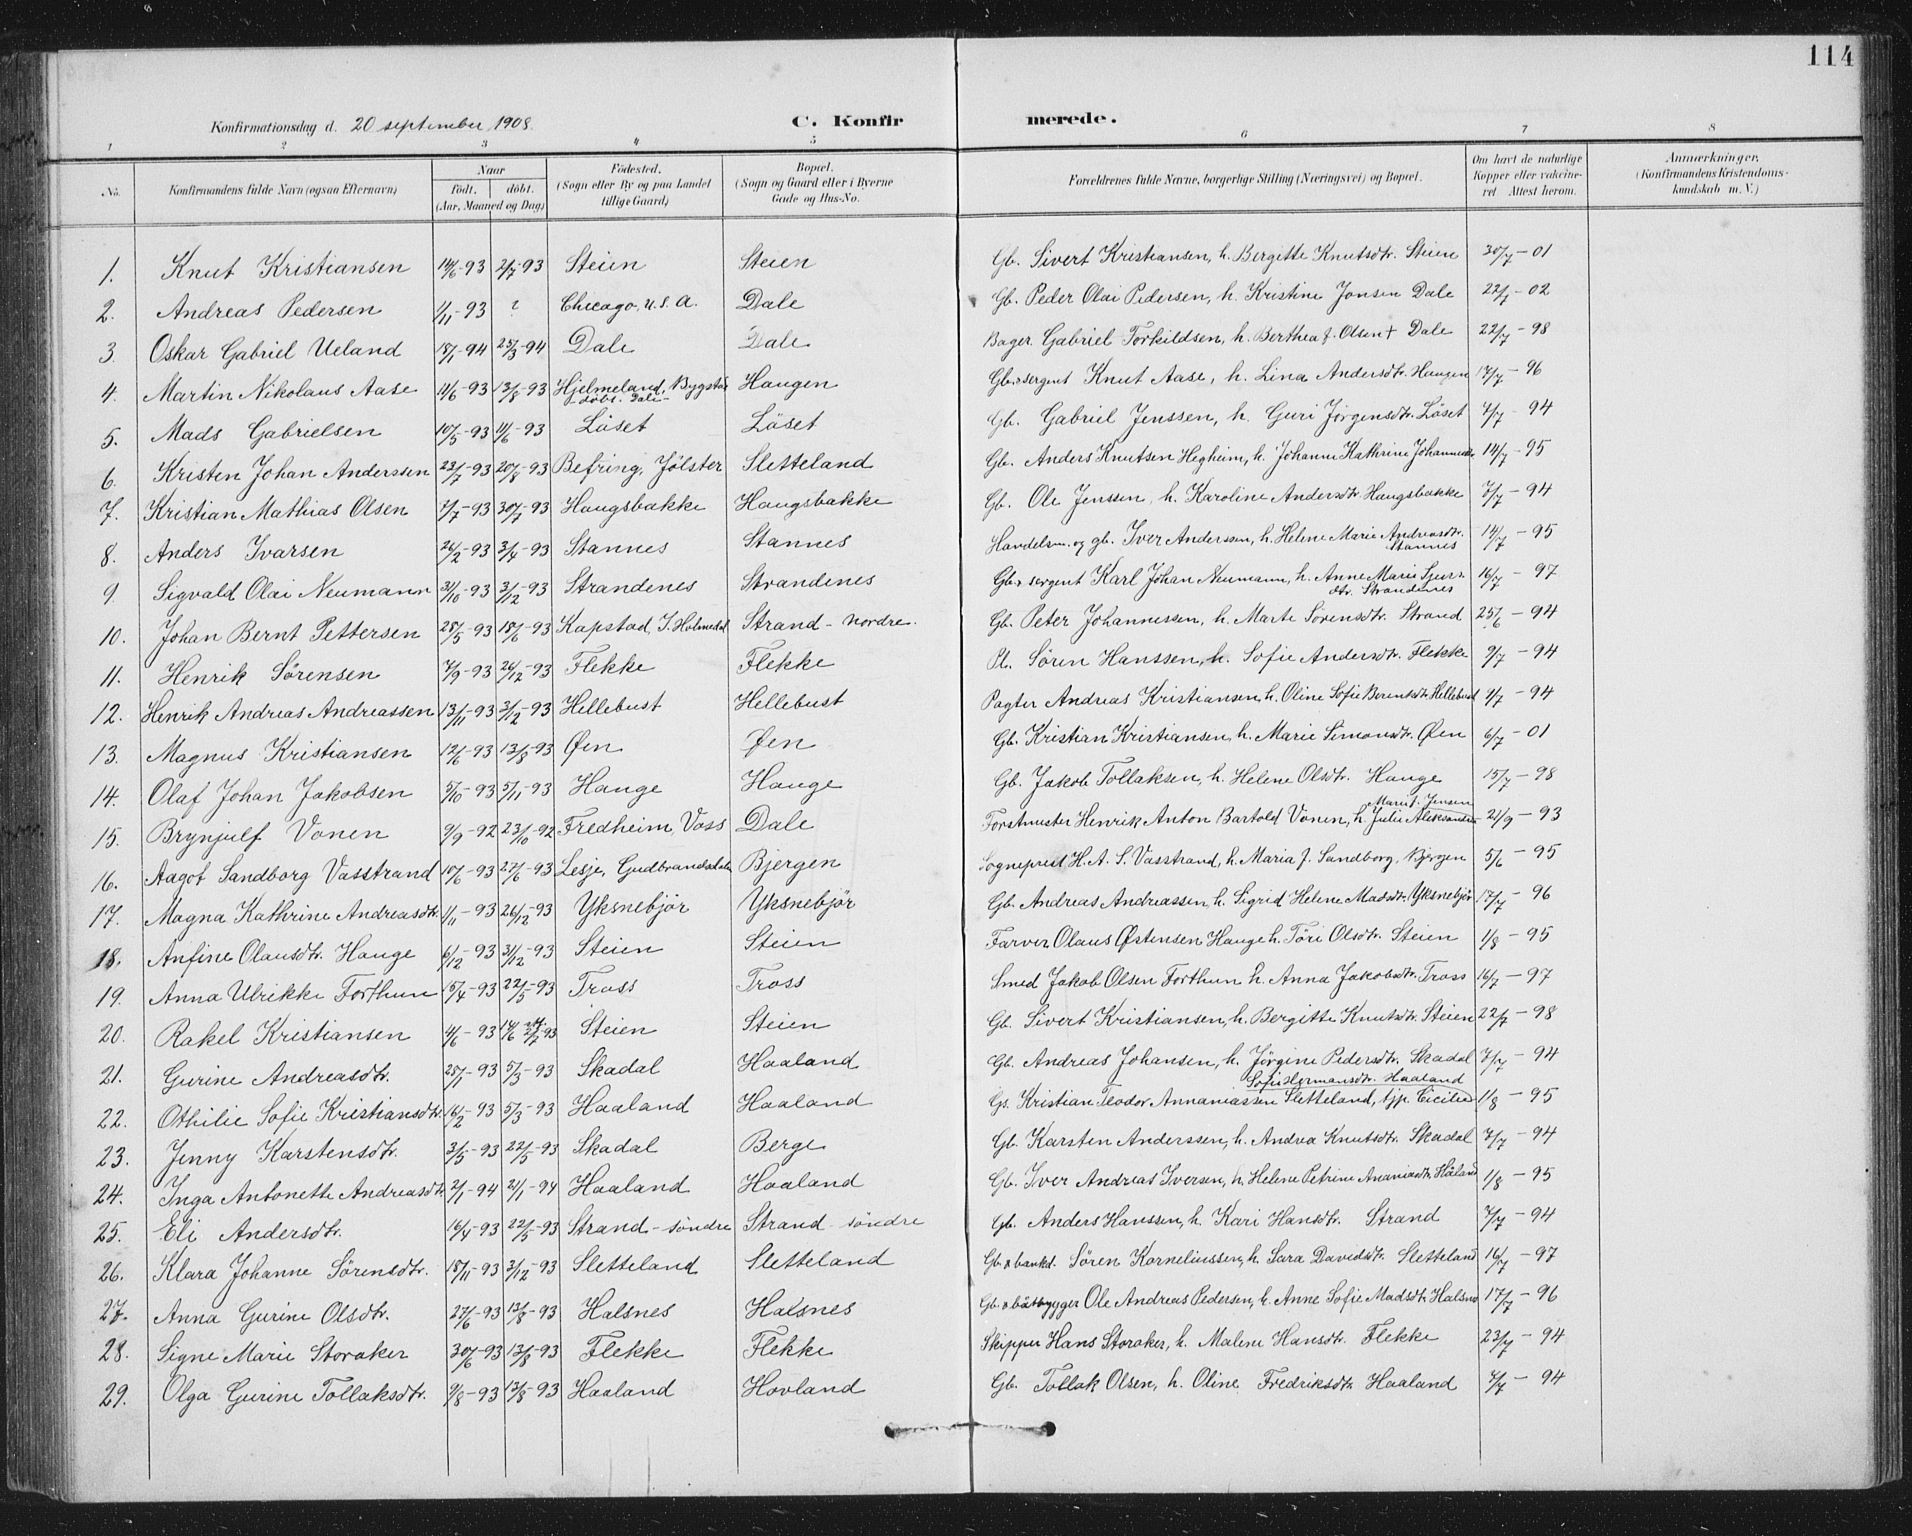 114
Konfirmationsdag d. 20 september 1908.
C. Konfirmerede.
1 2 3 4 5 6 7 8
No. Konfirmandens fulde Navn (ogsaa Efternavn) Naar født. døbt. (Aar, Maaned og Dag) Fødested. (Sogn eller By og paa Landet tillige Gaard) Bopæl. (Sogn og Gaard eller i Byerne Gade og Hus-No. Forældrenes fulde Navne, borgerlige Stilling (Næringsvei) og Bopæl. Om havt de naturlige Kopper eller vakcineret Attest herom. Anmærkninger. (Konfirmandens Kristendomskundskab m. V.)
1. Knut Kristiansen 14/6-93 2/7-93 Steien Steien Gb. Sivert Kristiansen, h. Bergitte Knutsdtr. Steien 30/7-01
2. Andreas Pedersen 1/11-93 ? Chicago, U.S.A. Dale Gb. Peder Olai Pedersen, h. Kristine Jonsen Dale 22/1-02
3. Oskar Gabriel Ueland 18/1-94 25/3-94 Dale Dale Bager Gabriel Torkildsen, h. Berthea f. Olsen † Dale 22/7-98
4. Martin Nikolaus Aase 11/6-93 13/8-93 Hjelmeland, Bygstad døbt. Dale Haugen Gb. & sergent Knut Aase, h. Lina Andersdtr. Haugen 17/7-96
5. Mads Gabrielsen 10/5-93 11/6-93 Löset Löset Gb. Gabriel Jenssen, h. Guri Jørgensdtr. Löset 4/7-94
6. Kristen Johan Anderssen 23/7-93 20/8-93 Befring, Jölster Sletteland Gb. Anders Knutsen Hegheim, h. Johanne Kathrine Johannesdtr. 14/7-95
7. Kristian Mathias Olsen 7/7-93 30/7-93 Haugsbakke Haugsbakke Gb. Ole Jenssen, h. Karoline Andersdtr. Haugsbakke 7/7-94
8. Anders Ivarsen 26/2-93 3/4-93 Stannes Stannes Handelsm. og gb. Iver Anderssen, h. Helene Marie Andreasdtr. Stannes 14/7-95
9. Sigvald Olai Neumann 31/10-93 3/12-93 Strandenes Strandenes Gb. & sergent Karl Johan Neumann, h. Anne Marie Sjursdtr. Strandenes 16/7-97
10. Johan Bernt Pettersen 28/5-93 18/6-93 Kapstad, I. Holmedal Strand-nordre. Gb. Peter Johannessen, h. Marte Sørensdtr. Strand 25/6-94
11. Henrik Sørensen 7/9-93 26/12-93 Flekke Flekke Pl. Sören Hanssen, h. Sofie Andersdtr. Flekke 9/7-94
12. Henrik Andreas Andreassen 13/11-93 3/12-93 Hellebust Hellebust Pagter Andreas Kristiansen, h. Oline Sofie Berentsdtr. Hellebust 4/7-94
13. Magnus Kristiansen 12/6-93 13/8-93 Øen Øen Gb. Kristian Kristiansen, h. Marie Simonsdtr. Øen 6/7-01
14. Olaf Johan Jakobsen 5/10-93 5/11-93 Hauge Hauge Gb. Jakob Tollaksen, h. Helene Olsdtr. Hauge 15/7-98
15. Brynjulf Vonen 9/9-92 23/10-92 Fredheim, Voss Dale Forstmester Henrik Anton Bartold Vonen, h. Julie Aleksandra Marie f. Jensen 21/9-93
16. Aagot Sandborg Vasstrand 10/6-93 27/6-93 Lesje, Gudbrandsdalen Bjergen Sogneprest H. A. S. Vasstrand, h. Maria f. Sandborg, Bjergen 5/6-95
17. Magna Kathrine Andreasdtr. 1/11-93 26/12-93 Yksnebjör Yksnebjör Gb. Andreas Andreassen, h. Sigrid Helene Madsdtr. Yksnebjör 17/7-96
18. Anfine Olausdtr. Hauge 6/12-93 31/12-93 Steien Steien Farver Olaus Østensen Hauge h. Töri Olsdtr. Steien 1/8-95
19. Anna Ulrikke Forthun 15/4-93 22/5-93 Tross Tross Smed Jakob Olsen Forthun h. Anna Jakobsdtr. Tross 16/7-97
20. Rakel Kristiansen 4/6-93 Steien Steien Gb. Sivert Kristiansen, h. Bergitte Knutsdtr. Steien 22/7-98
21. Gurine Andreasdtr. 25/1-93 5/3-93 Skadal Haaland Gb. Andreas Johansen, h. Jørgine Pedersdtr. Skadal 7/7-94
22. Othilie Sofie Kristiansdtr. 16/2-93 5/3-93 Haaland Haaland Gs. Kristian Teodor Annaniassen Sletteland, tjp. Cicilie Sofie Hermansdtr. Haaland 1/8-95
23. Jenny Karstensdtr. 3/5-93 22/5-93 Skadal Berge Gb. Karsten Anderssen, h. Andrea Knutsdtr. Skadal 7/7-94
24. Inga Antonette Andreasdtr. 2/1-94 21/1-94 Haaland Haaland Gb. Iver Andreas Iversen, h. Helene Petrine Ananiasdtr. Håland 1/8-95
25. Eli Andersdtr. 16/4-93 22/5-93 Strand-söndre Strand-söndre Gb. Anders Hanssen, h. Kari Hansdtr. Strand 7/7-94
26. Klara Johanne Sörensdtr. 18/11-93 3/12-93 Sletteland Sletteland Gb. & bankd. Sören Korneliussen, h. Sara Davidsdtr. Sletteland 16/7-97
27. Anna Gurine Olsdtr. 27/6-93 13/8-93 Halsnes Halsnes Gb. & båtbygger Ole Andreas Pedersen, h. Anne Sofie Madsdtr. Halsnes 17/7-96
28. Signe Marie Storaker 30/6-93 13/8-93 Flekke Flekke Skipper Hans Storaker, h. Malene Hansdtr. Flekke 23/7-94
29. Olga Gurine Tollaksdtr. 9/8-93 13/8-93 Haaland Hovland Gb. Tollak Olsen, h. Oline Fredriksdtr. Haaland 4/7-94